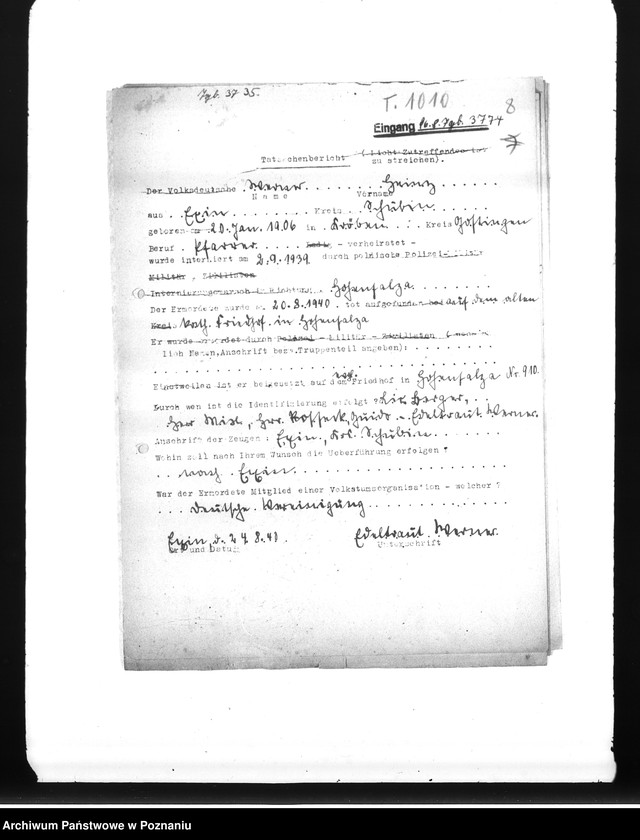 Jgb. 37 35.
T. 1010
8
Eingang 16.8. Jgb. 3774
Tatsachenbericht (Nicht Zutreffendes ist
zu streichen).
Der Volksdeutsche Werner Heinz
Name Vorname
aus Exin Kreis Schubin
geboren am 20. Jan. 1906 in Kröben Kreis Gostingen
Beruf Pfarrer ledig - verheiratet -
wurde interniert am 2.9.1939 durch polnische Polizei-Militär
Militär, Zivilisten
Internierungsmarsch in Richtung Hohensalza
Der Ermordete wurde am 20.8.1940 tot aufgefunden bei auf dem alten
Kreis Kath. Friedhof in Hohensalza
Er wurde ermordet durch Polizei - Militär - Zivilisten
lich Namen, Anschrift bezw. Truppenteil angeben):
Einstweilen ist er beigesetzt auf dem ev. Friedhof in Hohensalza Nr 910.
Durch wen ist die Identifizierung erfolgt?
Herr Guido u. Edeltraut Werner.
Anschrift der Zeugen: Exin, Krs. Schubin
Wohin soll nach Ihrem Wunsch die Ueberführung erfolgen?
nach Exin
War der Ermordete Mitglied einer Volkstumsorganisation - welcher?
Deutsche Vereinigung
Exin, d. 24.8.40. Edeltraut Werner.
Ort und Datum Unterschrift
Archiwum Państwowe w Poznaniu